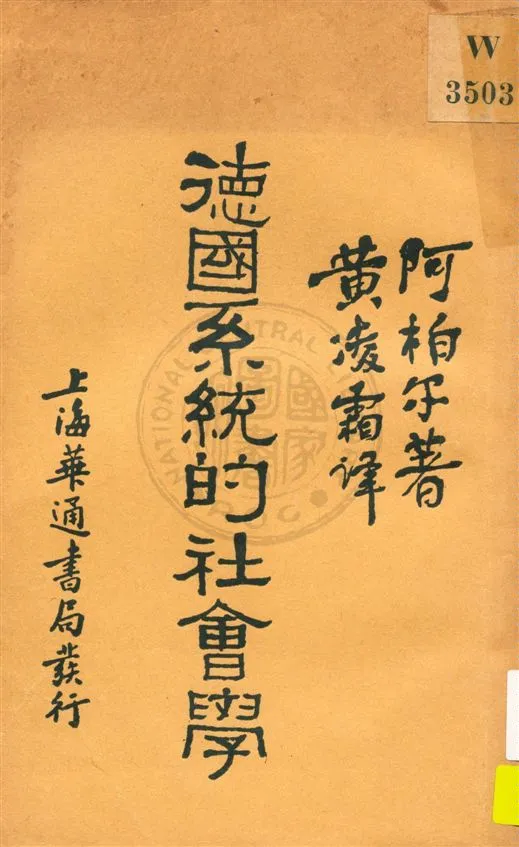 W
3503
阿柏尔著
黄凌霜译
德國系統的社會學
上海華通書局發行
NATIONAL CENTRAL
國家
圖書
ROC